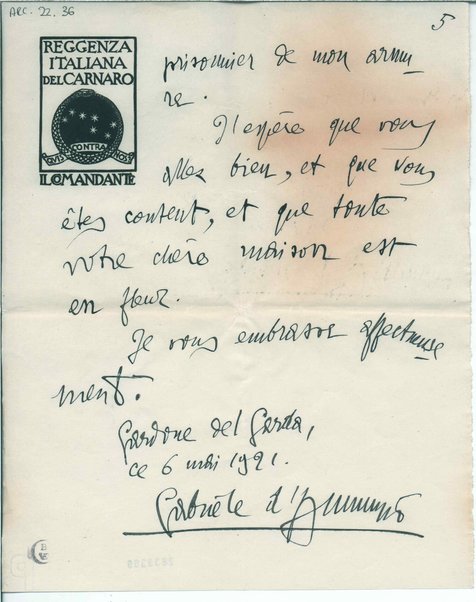 ARC. 22. 36
5
REGGENZA
ITALIANA
DEL CARNARO
QUIS CONTRA NOS
IL COMANDANTE
prisonnier de mon armu
re.
J'espère que vous
allez bien, et que vous
êtes content, et que toute
votre chère maison est
en fleur.
Je vous embrasse affectueuse
ment.
Gardone del Garda,
ce 6 mai 1921.
Gabriele d'Annunzio